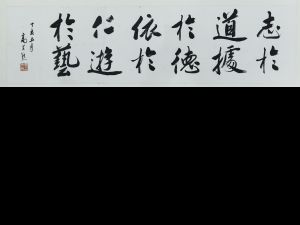 志於
道據
於德
依於
仁遊
於藝
丁亥五月